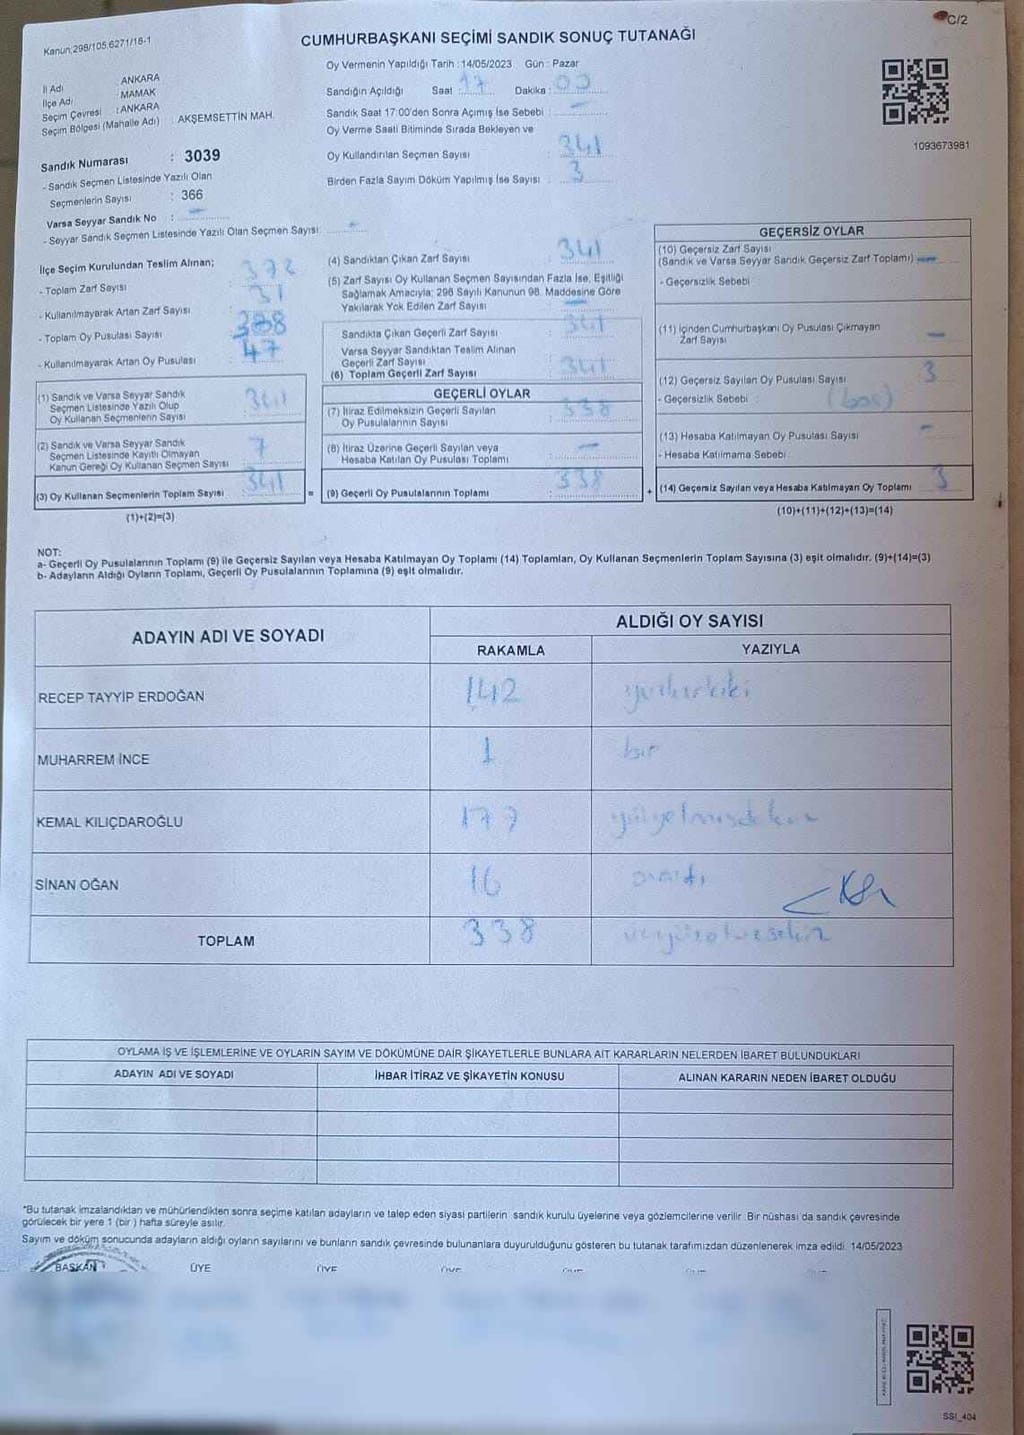 C/2
Kanun,298/105;6271/18-1
CUMHURBAŞKANI SEÇİMİ SANDIK SONUÇ TUTANAĞI
İl Adı : ANKARA
İlçe Adı : MAMAK
Seçim Çevresi : ANKARA
Seçim Bölgesi (Mahalle Adı) : AKŞEMSETTİN MAH.
Sandık Numarası : 3039
- Sandık Seçmen Listesinde Yazılı Olan
Seçmenlerin Sayısı : 366
Varsa Seyyar Sandık No : -
- Seyyar Sandık Seçmen Listesinde Yazılı Olan Seçmen Sayısı: -
Oy Vermenin Yapıldığı Tarih : 14/05/2023 Gün : Pazar
Sandığın Açıldığı Saat : 17 Dakika : 00
Sandık Saat 17:00'den Sonra Açımış İse Sebebi : -
Oy Verme Saati Bitiminde Sırada Bekleyen ve
Oy Kullandırılan Seçmen Sayısı : 341
Birden Fazla Sayım Döküm Yapılmış İse Sayısı : 3
1093673981
İlçe Seçim Kurulundan Teslim Alınan;
- Toplam Zarf Sayısı : 372
- Kullanılmayarak Artan Zarf Sayısı : 31
- Toplam Oy Pusulası Sayısı : 388
- Kullanılmayarak Artan Oy Pusulası : 47
(1) Sandık ve Varsa Seyyar Sandık
Seçmen Listesinde Yazılı Olup
Oy Kullanan Seçmenlerin Sayısı :
(2) Sandık ve Varsa Seyyar Sandık
Seçmen Listesinde Kayıtlı Olmayan
Kanun Gereği Oy Kullanan Seçmen Sayısı : 7
(3) Oy Kullanan Seçmenlerin Toplam Sayısı : 341
(1)+(2)=(3)
(4) Sandıktan Çıkan Zarf Sayısı : 341
(5) Zarf Sayısı Oy Kullanan Seçmen Sayısından Fazla İse, Eşitliği
Sağlamak Amacıyla; 298 Sayılı Kanunun 98. Maddesine Göre
Yakılarak Yok Edilen Zarf Sayısı : -
Sandıkta Çıkan Geçerli Zarf Sayısı : 341
Varsa Seyyar Sandıktan Teslim Alınan
Geçerli Zarf Sayısı
(6) Toplam Geçerli Zarf Sayısı : 341
GEÇERLİ OYLAR
(7) İtiraz Edilmeksizin Geçerli Sayılan
Oy Pusulalarının Sayısı : 338
(8) İtiraz Üzerine Geçerli Sayılan veya
Hesaba Katılan Oy Pusulası Toplamı : -
= (9) Geçerli Oy Pusulalarının Toplamı : 338
GEÇERSİZ OYLAR
(10) Geçersiz Zarf Sayısı
(Sandık ve Varsa Seyyar Sandık Geçersiz Zarf Toplamı) : -
- Geçersizlik Sebebi :
(11) İçinden Cumhurbaşkanı Oy Pusulası Çıkmayan
Zarf Sayısı : -
(12) Geçersiz Sayılan Oy Pusulası Sayısı : 3
- Geçersizlik Sebebi : (boş)
(13) Hesaba Katılmayan Oy Pusulası Sayısı : -
- Hesaba Katılmama Sebebi :
+ (14) Geçersiz Sayılan veya Hesaba Katılmayan Oy Toplamı : 3
(10)+(11)+(12)+(13)=(14)
NOT:
a- Geçerli Oy Pusulalarının Toplamı (9) ile Geçersiz Sayılan veya Hesaba Katılmayan Oy Toplamı (14) Toplamları, Oy Kullanan Seçmenlerin Toplam Sayısına (3) eşit olmalıdır. (9)+(14)=(3)
b- Adayların Aldığı Oyların Toplamı, Geçerli Oy Pusulalarının Toplamına (9) eşit olmalıdır.
ADAYIN ADI VE SOYADI ALDIĞI OY SAYISI
RAKAMLA YAZIYLA
RECEP TAYYİP ERDOĞAN 142 yüzkırkiki
MUHARREM İNCE 1 bir
KEMAL KILIÇDAROĞLU 177
SİNAN OĞAN 16 onaltı
TOPLAM 338 üçyüzotuzsekiz
OYLAMA İŞ VE İŞLEMLERİNE VE OYLARIN SAYIM VE DÖKÜMÜNE DAİR ŞİKAYETLERLE BUNLARA AİT KARARLARIN NELERDEN İBARET BULUNDUKLARI
ADAYIN ADI VE SOYADI İHBAR İTİRAZ VE ŞİKAYETİN KONUSU ALINAN KARARIN NEDEN İBARET OLDUĞU
*Bu tutanak imzalandıktan ve mühürlendikten sonra seçime katılan adayların ve talep eden siyasi partilerin sandık kurulu üyelerine veya gözlemcilerine verilir. Bir nüshası da sandık çevresinde
görülecek bir yere 1 (bir ) hafta süreyle asılır.
Sayım ve döküm sonucunda adayların aldığı oyların sayılarını ve bunların sandık çevresinde bulunanlara duyurulduğunu gösteren bu tutanak tarafımızdan düzenlenerek imza edildi. 14/05/2023
BAŞKAN ÜYE ÜYE ÜYE
SSI_404